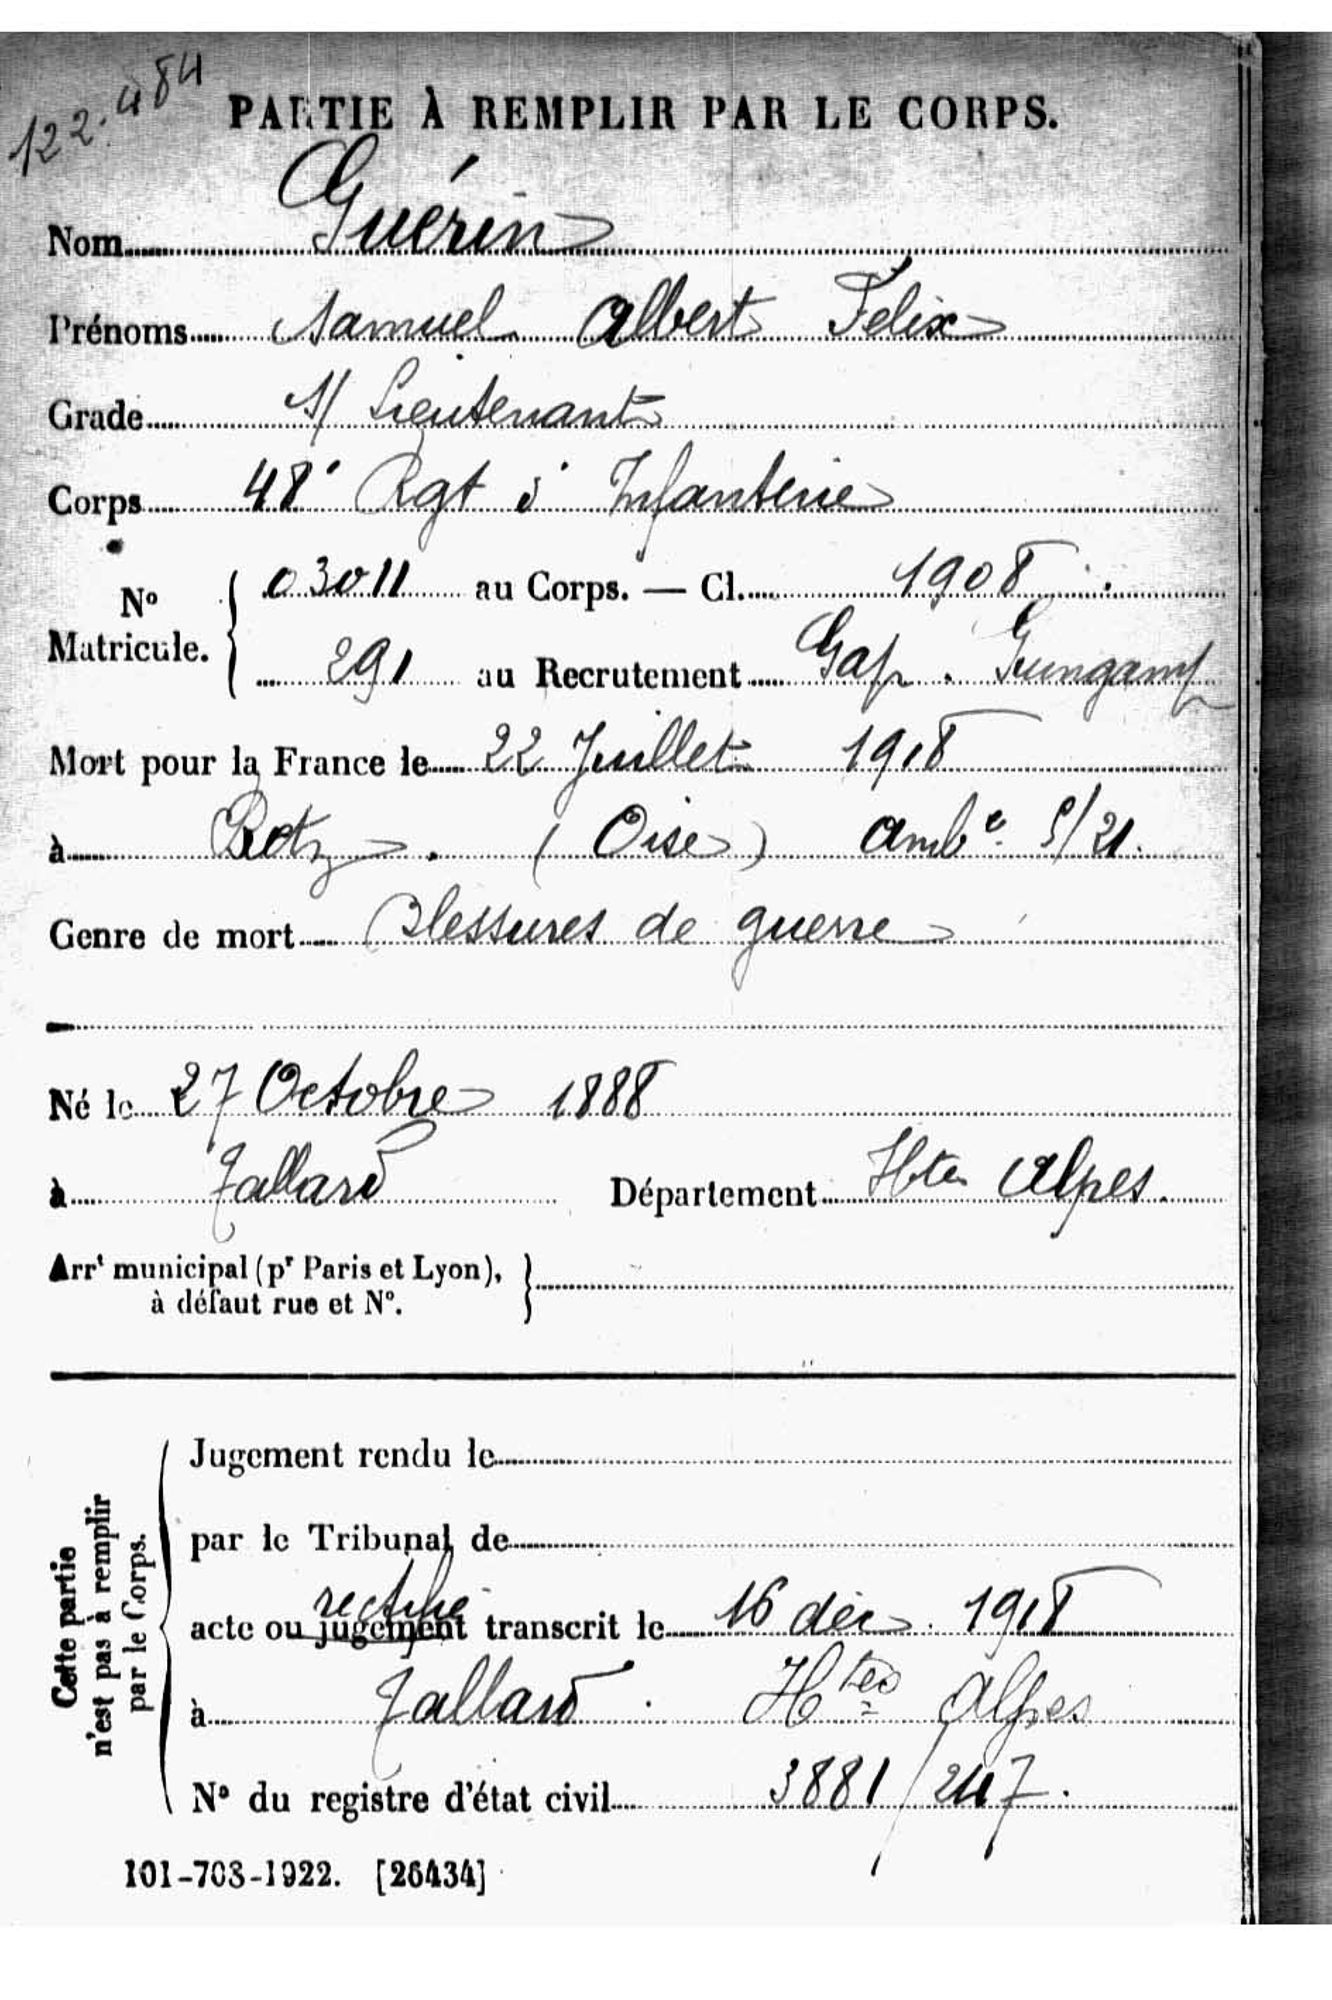 122.484
PARTIE À REMPLIR PAR LE CORPS.
Nom Guérin
Prénoms Samuel Albert Félix
Grade S/ Lieutenant
Corps 48e Rgt d' Infanterie
No Matricule. { 03011 au Corps. — Cl. 1908
291 au Recrutement Gap. Guingamp
Mort pour la France le 22 Juillet 1918
à Betz. (Oise) ambce 5/21.
Genre de mort Blessures de guerre
Né le 27 Octobre 1888
à Tallard Département Htes Alpes.
Arrt municipal (pr Paris et Lyon), }
à défaut rue et No.
Cette partie
n'est pas à remplir
par le Corps.
Jugement rendu le
par le Tribunal de
rectifié
acte ou jugement transcrit le 16 déc. 1918
à Tallard. Htes Alpes
No du registre d'état civil 3881/247.
101-708-1922. [26434]